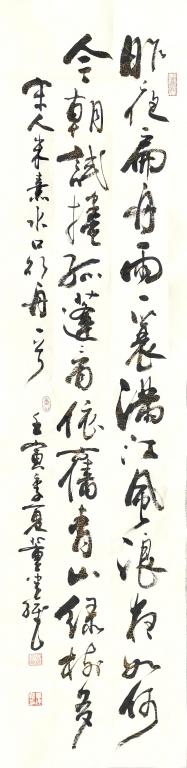 昨夜扁舟雨一蓑滿江風浪夜如何
今朝試捲孤蓬看依舊青山綠樹多
宋人朱熹水口行舟一首
壬寅季夏董